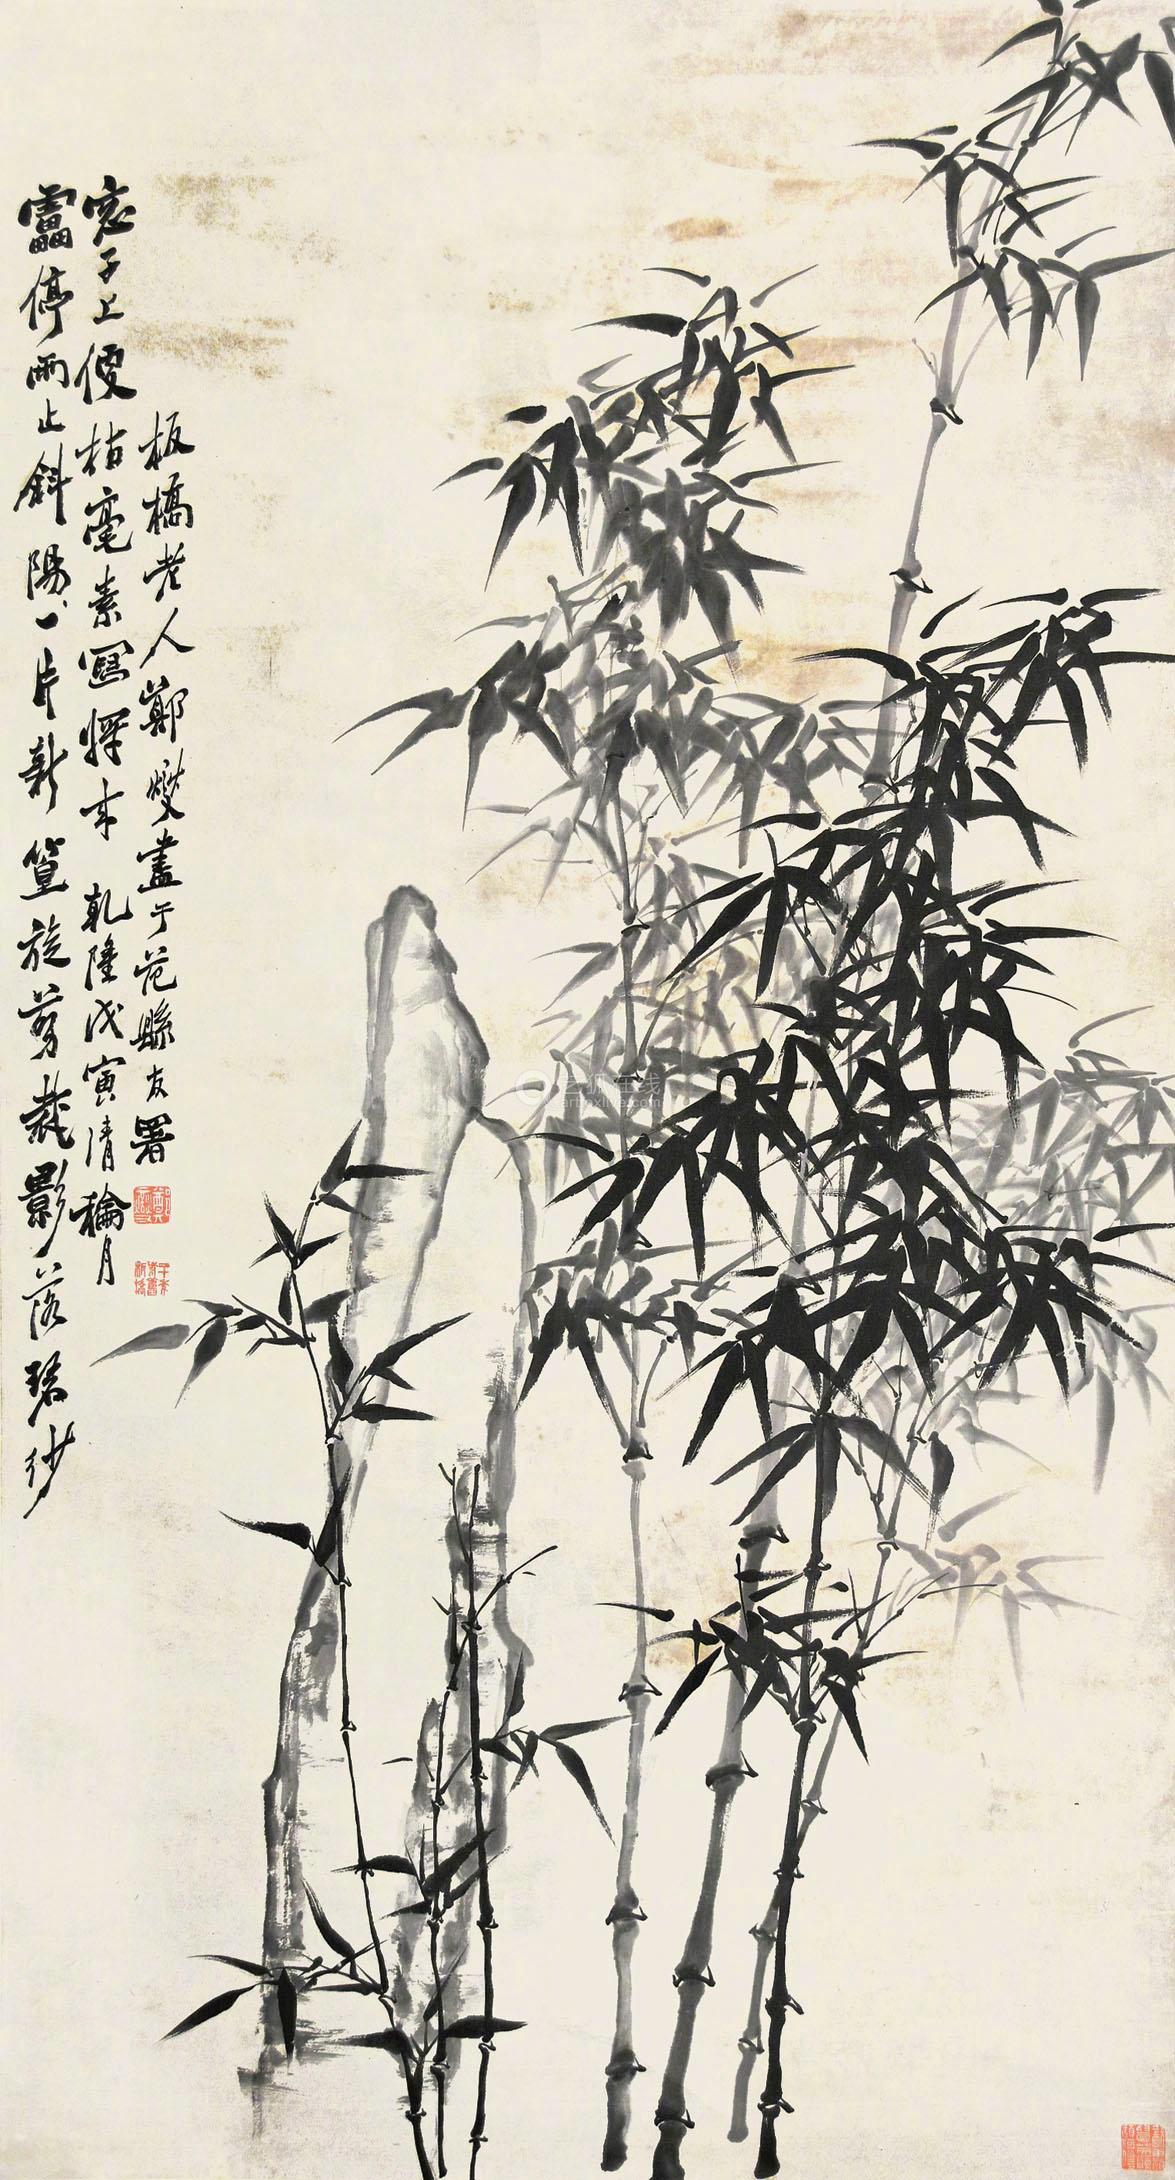 靁停雨止斜陽一片新篁旋剪裁影落碧紗
窓子上便拈毫素寫將來 乾隆戊寅清稐月
板橋老人鄭燮畫于范縣友署
艺狐在线
artfoxlive.com